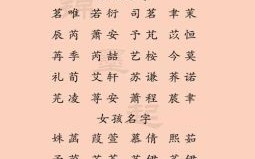 茗唯 若衍 司茗 聿茉
辰芮 萧安 予芃 苡恒
苒季 芮喆 艺桉 今莫
礼荀 艾轩 苏谦 荞诺
芫凌 荨安 萧程 宸聿
女孩名字
姝菡 葭萱 慕倩 熙茹